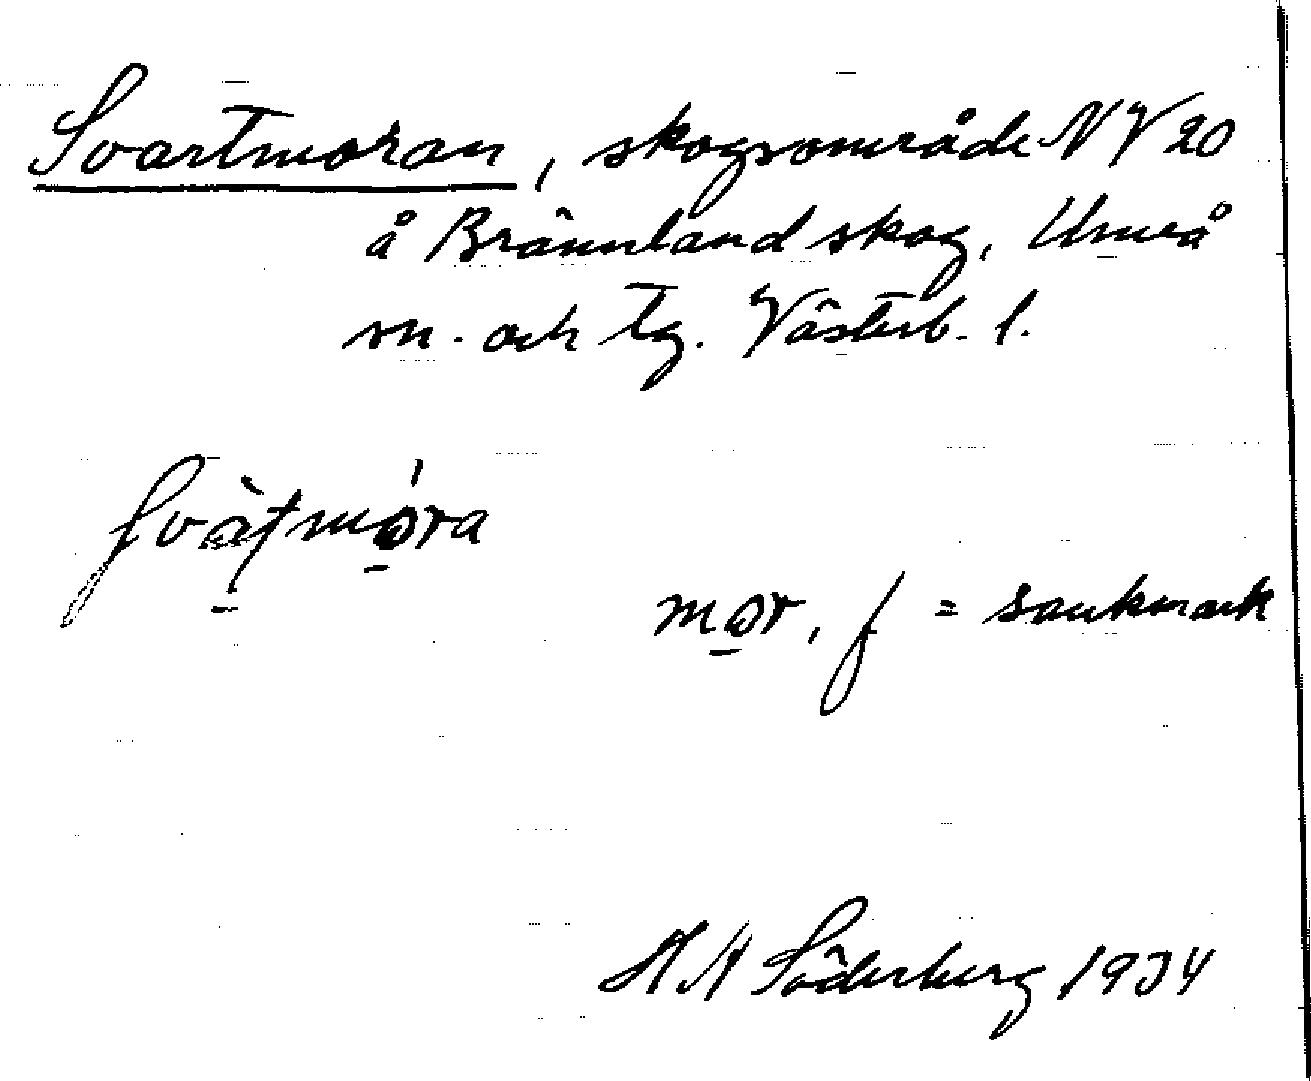 Svartmoran, skogsområde NV 20
å Brännland skog, Umeå
sn. och tg. Västerb. l.
svàtmóra
mor, f = sankmark
Söderberg 1934